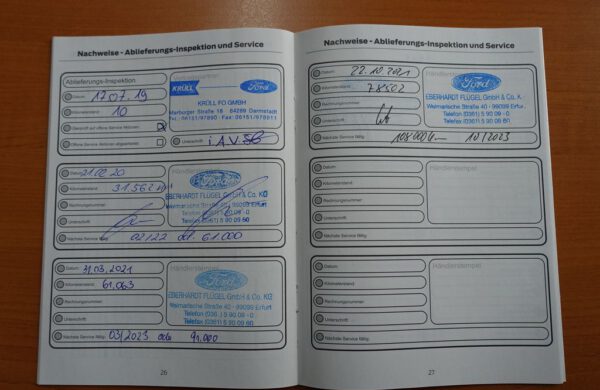 Nachweise - Ablieferungs-Inspektion und Service
Ablieferungs-Inspektion
Datum 17.07.19
Kilometerstand 10
Geprüft auf offene Service Aktionen
Offene Service Aktionen abgearbeitet
KRÜLL
Ford
KRÜLL FO GMBH
Marburger Straße 18 64289 Darmstadt
Tel.: 06151/97890 · Fax: 06151/978911
Unterschrift i.A.V.
Datum 21.02.20
Kilometerstand 31.562
Rechnungsnummer
Unterschrift
Nächste Service fällig 02/22 od. 61.000
Händlerstempel
Ford
EBERHARDT FLÜGEL GmbH & Co. KG
Weimarische Straße 40 - 99099 Erfurt
Telefon (0361) 5 90 09 - 0
Telefax (0361) 5 90 09 60
Datum 31.03.2021
Kilometerstand 61.063
Rechnungsnummer
Unterschrift
Nächste Service fällig 03/2023 oder 91.000
Händlerstempel
Ford
EBERHARDT FLÜGEL GmbH & Co. KG
Weimarische Straße 40 - 99099 Erfurt
Telefon (0361) 5 90 09 - 0
Telefax (0361) 5 90 09 60
26
Nachweise - Ablieferungs-Inspektion und Service
Datum 22.10.2021
Kilometerstand 78502
Rechnungsnummer
Unterschrift
Nächste Service fällig 108000km 10/2023
Händlerstempel
Ford
EBERHARDT FLÜGEL GmbH & Co. K
Weimarische Straße 40 - 99099 Erfur
Telefon (0361) 5 90 09 - 0
Telefax (0361) 5 90 09 60
Datum
Kilometerstand
Rechnungsnummer
Unterschrift
Nächste Service fällig
Händlerstempel
Datum
Kilometerstand
Rechnungsnummer
Unterschrift
Nächste Service fällig
Händlerstempel
27